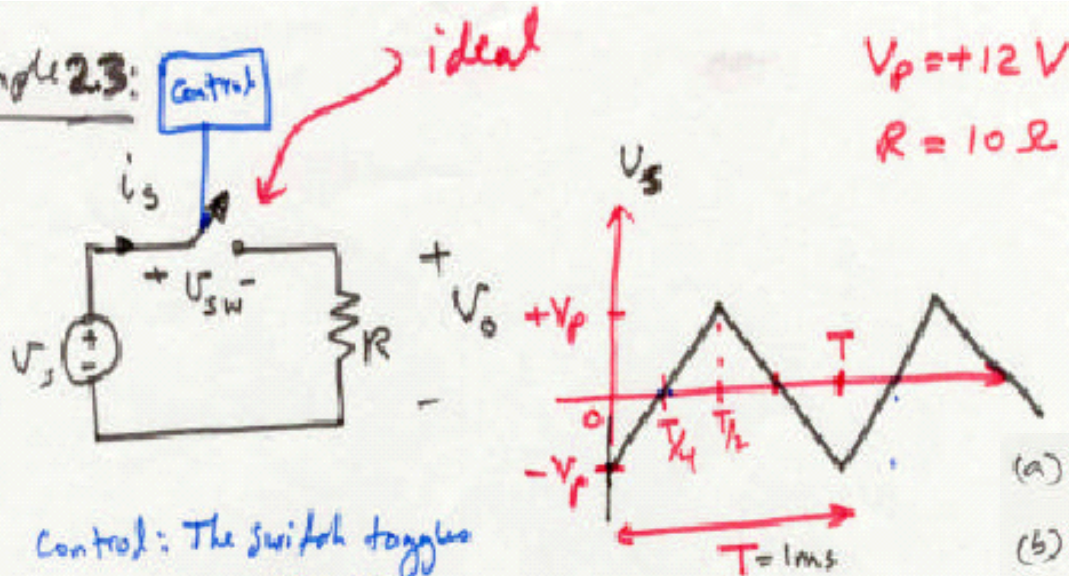 mple 2.3:
control
ideal
Vp = +12 V
R = 10 Ω
is
+ Vsw -
Vs
+
-
R
+
Vo
-
Vs
+Vp
0
-Vp
T/4
T/2
T
T = 1ms
(a)
(b)
control: The switch toggles